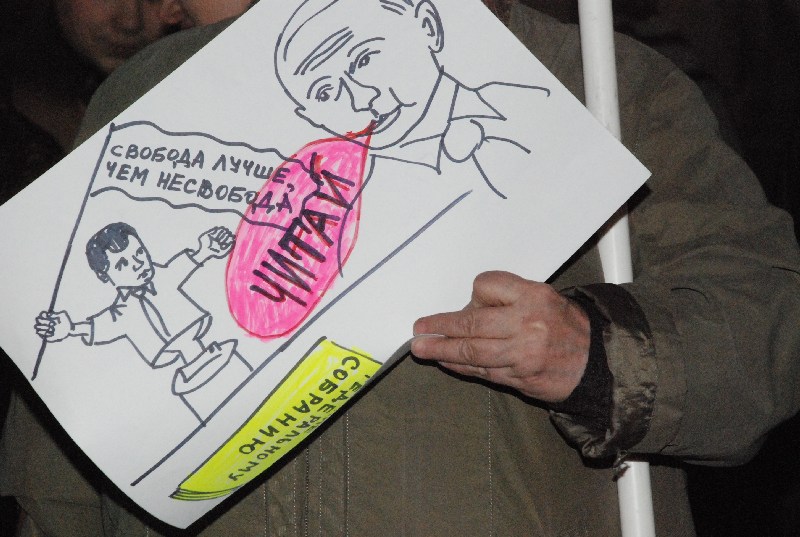 СВОБОДА ЛУЧШЕ,
ЧЕМ НЕСВОБОДА
ЧИТАЙ
ФЕДЕРАЛЬНОМУ
СОБРАНИЮ